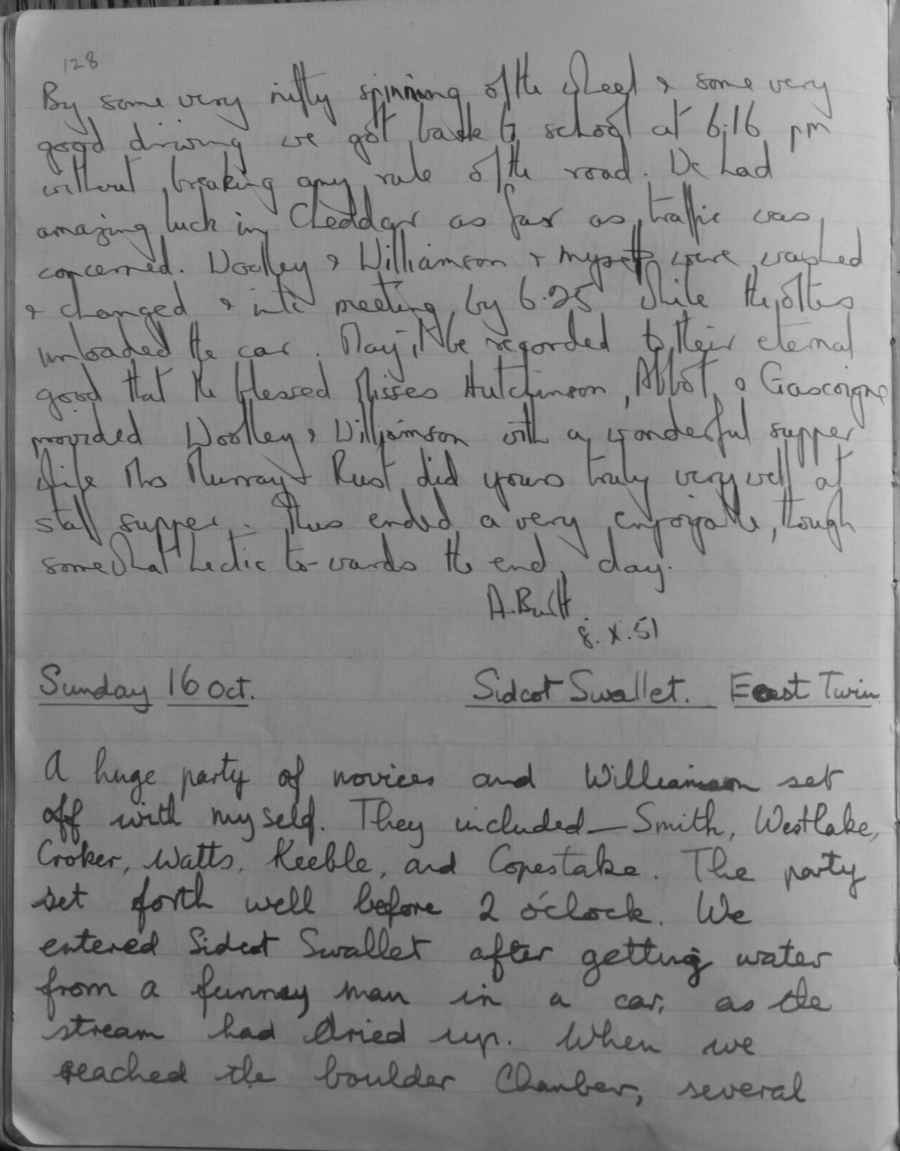 128
By some very nifty spinning of the wheel & some very
good driving we got back to school at 6.16 pm
without breaking any rule of the road. We had
amazing luck in Cheddar as far as traffic was
concerned. Woolley & Williamson & myself were washed
& changed & into meeting by 6.25 while the others
unloaded the car. May it be regorded to their eternal
good that the blessed Misses Hutchinson, Abbot, & Gascoigne
provided Woolley & Williamson with a wonderful supper
while Mrs Murray Rust did yours truly very well at
staff supper. Thus ended a very enjoyable, though
somewhat hectic to-wards the end, day.
A.
8.X.51
Sunday 16 Oct. Sidcot Swallet. East Twin
A huge party of novices and Williamson set
off with myself. They included — Smith, Westlake,
Croker, Watts, Keeble, and Copestake. The party
set forth well before 2 o'clock. We
entered Sidcot Swallet after getting water
from a funney man in a car, as the
stream had dried up. When we
reached the boulder Chamber, several